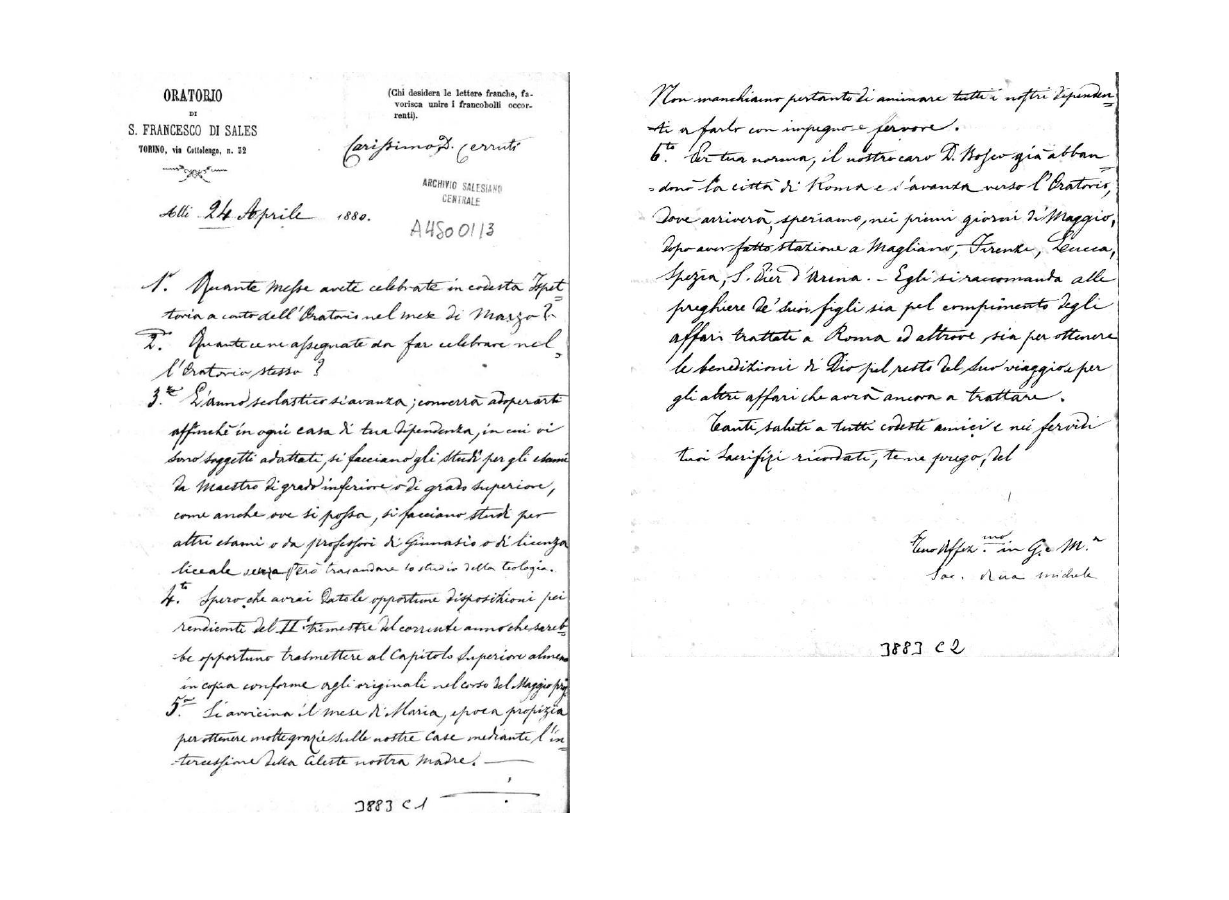 ORATORIO
DI
S. FRANCESCO DI SALES
TORINO, via Cottolengo, n. 32
(Chi desidera le lettere franche, fa-
vorisca unire i francobolli occor-
renti).
Carissimo D. Cerruti
ARCHIVIO SALESIANO
CENTRALE
A4500113
Alli 24 Aprile 1880.
1.° Quante Messe avete celebrate in codesta Ispet-
toria a conto dell'Oratorio nel mese di Marzo?
2.° Quante ce ne assegnate da far celebrare nel-
l'Oratorio stesso?
3.° L'anno scolastico si avanza; converrà adoperarti
affinchè in ogni casa di tua dipendenza, in cui vi
sono soggetti adattati, si facciano gli studi per gli esami
da Maestro di grado inferiore o di grado superiore,
come anche ove si possa, si facciano studi per
altri esami o da professori di Ginnasio o di licenza
liceale senza però trasandare lo studio della teologia.
4.to Spero che avrai date le opportune disposizioni pei
rendiconti del II° trimestre del corrente anno che sareb-
be opportuno trasmettere al Capitolo Superiore almeno
in copia conforme agli originali nel corso del Maggio
5.° Si avvicina il mese di Maria, epoca propizia
per ottenere molte grazie sulle nostre Case mediante l'in-
tercessione della Celeste nostra Madre.
3883 C 1
Non manchiamo pertanto di animare tutti i nostri dipenden-
ti a farlo con impegno e fervore.
6.to Per tua norma, il nostro caro D. Bosco già abban-
donò la città di Roma e s'avanza verso l'Oratorio,
dove arriverà, speriamo, nei primi giorni di Maggio,
dopo aver fatto stazione a Magliano, Firenze, Lucca,
Spezia, S. Pier d'Arena. - Egli si raccomanda alle
preghiere de' suoi figli sia pel compimento degli
affari trattati a Roma ed altrove, sia per ottenere
le benedizioni di Dio pel resto del suo viaggio e per
gli altri affari che avrà ancora a trattare.
Tanti saluti a tutti codesti amici e nei fervidi
tuoi sacrifizi ricordati, te ne prego, del
Tuo Affez.mo in G. e M.a
Sac. Rua Michele
3883 C 2